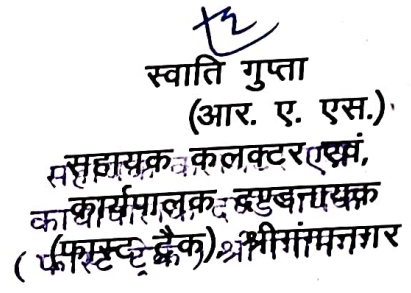 स्वाति गुप्ता
(आर. ए. एस.)
सहायक कलक्टर एवं
कार्यपालक दण्डनायक
(फास्ट ट्रैक) श्रीगंगानगर